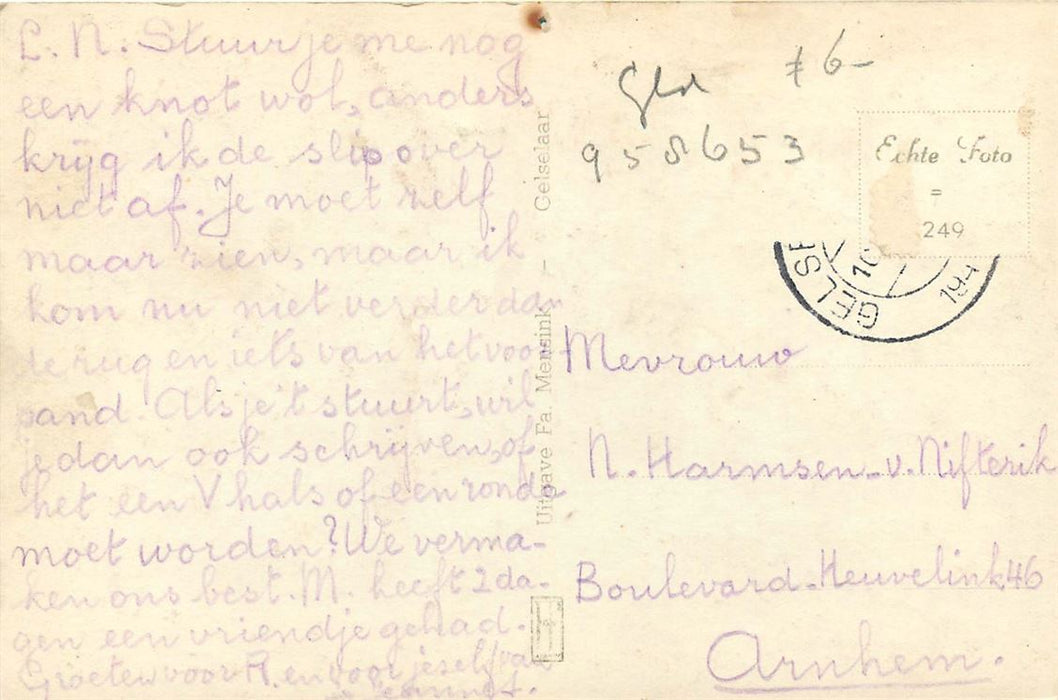 L. N. Stuur je me nog
een knot wol, anders
krijg ik de slipover
niet af. Je moet zelf
maar zien, maar ik
kom nu niet verder dan
de rug en iets van het voor-
pand. Als je 't stuurt, wil
je dan ook schrijven, of
het een V hals of een ronde
moet worden? We verma-
ken ons best. M. heeft 2 da-
gen een vriendje gehad.
Groeten voor A. en voor jezelf van
Uitgave Fa. Mensink - Gelselaar
Gld ƒ 6-
958653
Echte Foto
=
249
GELSE
10
194
Mevrouw
N. Harmsen-v. Nifterik
Boulevard-Heuvelink 46
Arnhem.